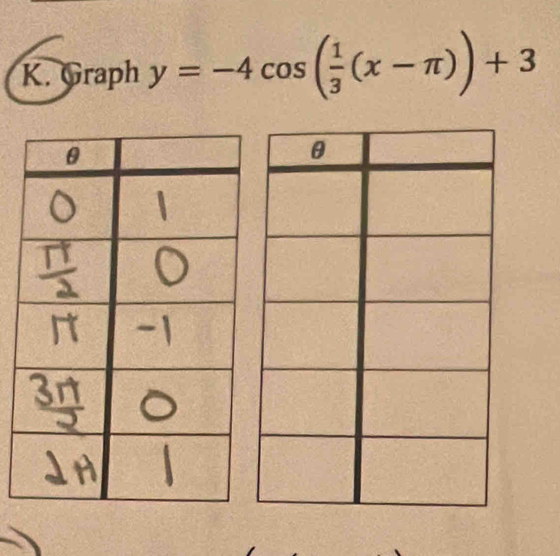 K. Graph y = −4 cos (1/3 (x − π)) + 3
θ θ
0 1
π/2 0
π -1
3π/2 0
2π 1